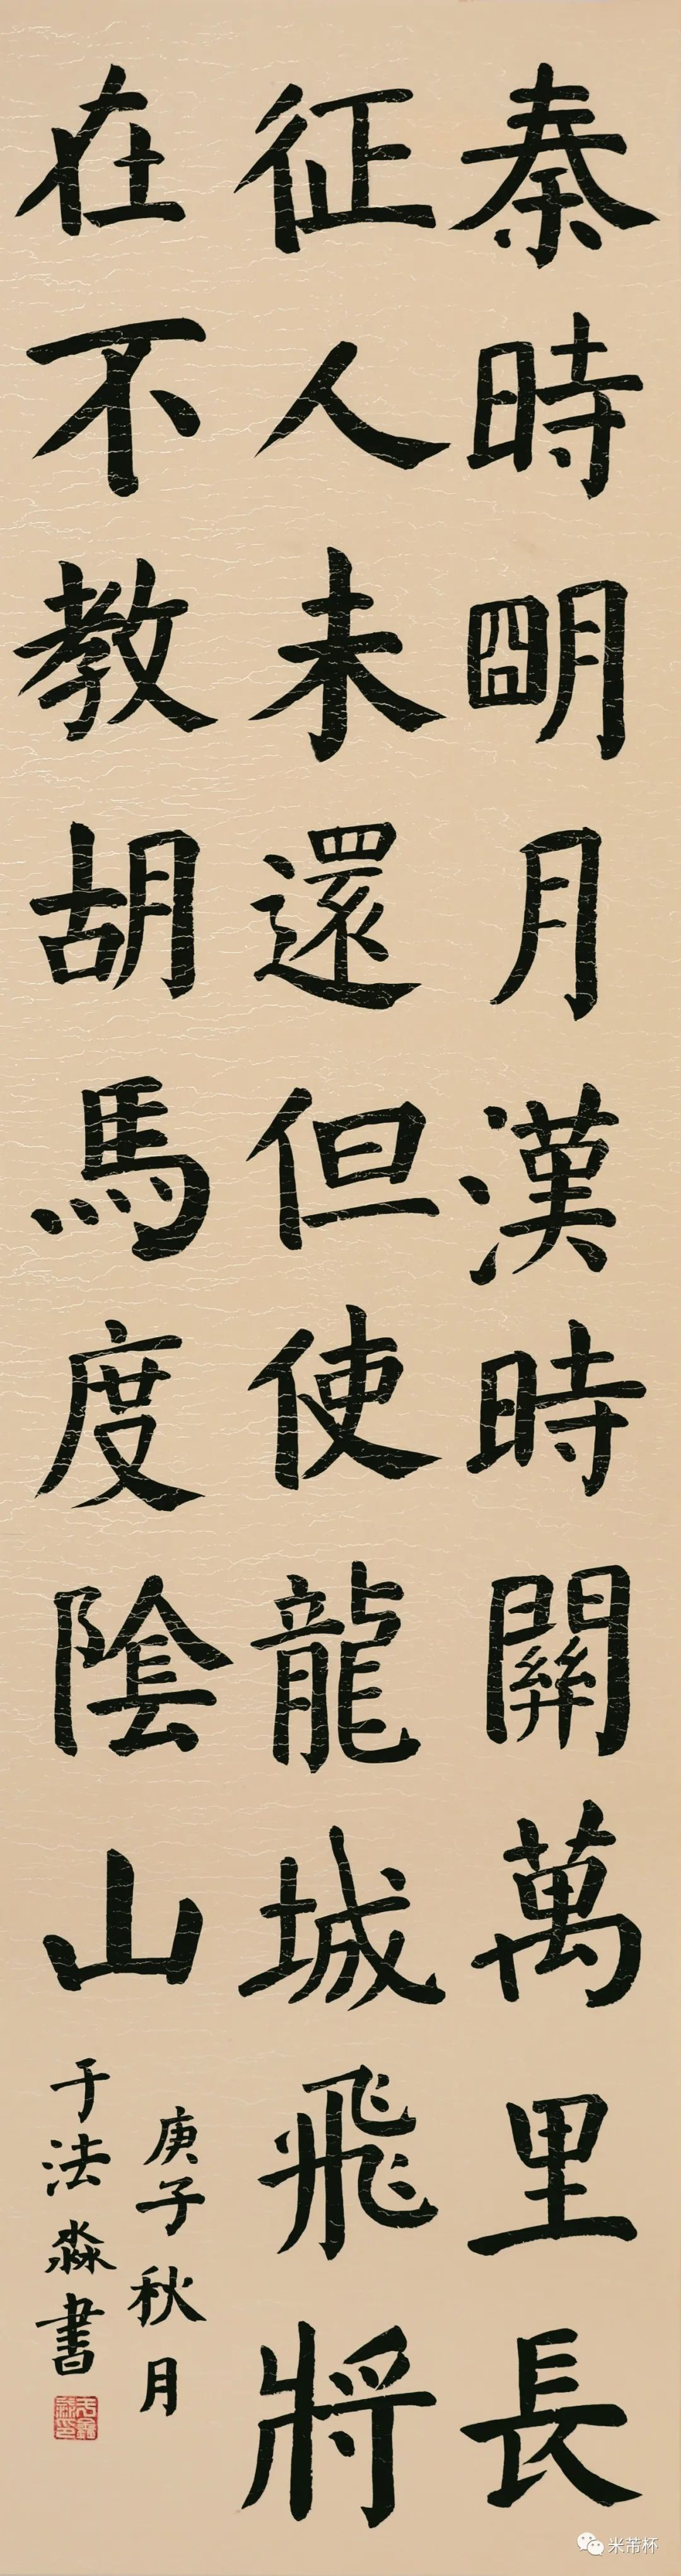 秦時明月漢時關萬里長
征人未還但使龍城飛將
在不教胡馬度陰山
庚子秋月
于法淼書
米芾杯